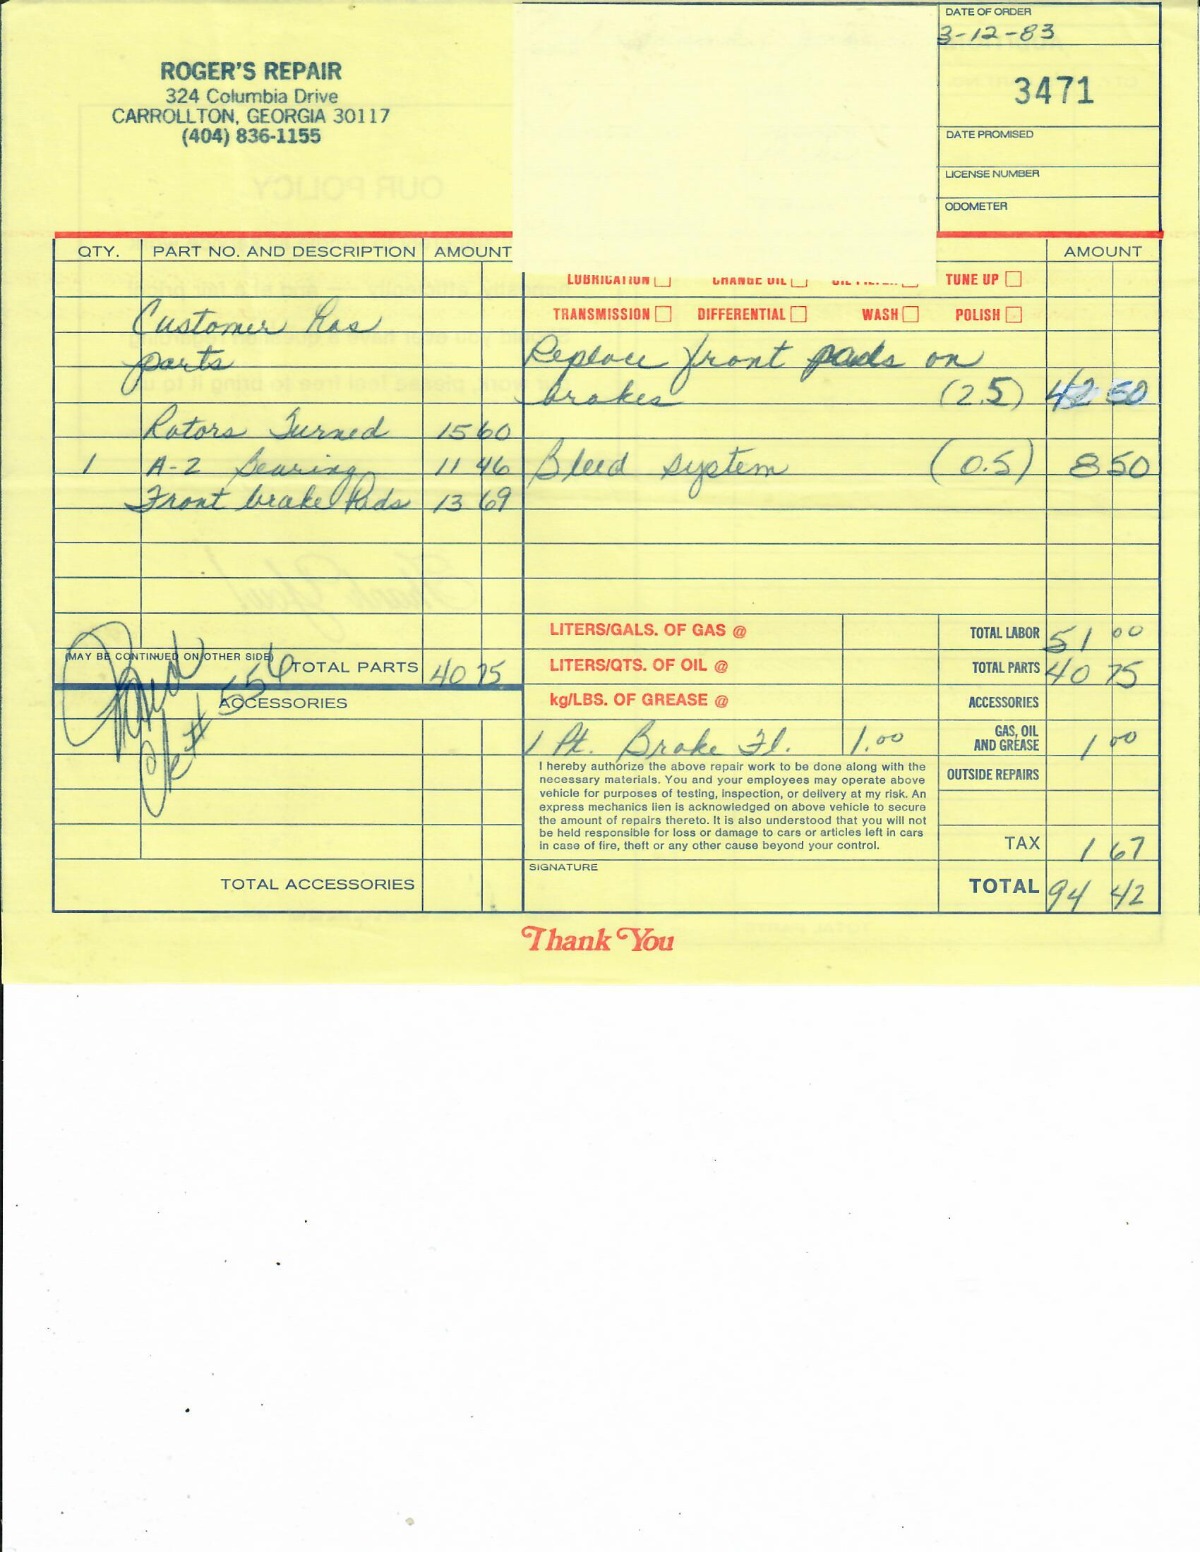 DATE OF ORDER
3-12-83
ROGER'S REPAIR
324 Columbia Drive
CARROLLTON, GEORGIA 30117
(404) 836-1155
3471
DATE PROMISED
LICENSE NUMBER
ODOMETER
OUR POLICY
QTY. PART NO. AND DESCRIPTION AMOUNT AMOUNT
LUBRICATION CHANGE OIL OIL FILTER TUNE UP
TRANSMISSION DIFFERENTIAL WASH POLISH
Customer has
parts
Replace front pads on
brakes (2.5) 42 50
Rotors Turned 15 60
1 A-2 Bearing 11 46 Bleed system (0.5) 8 50
Front brake Pads 13 69
Thank You!
LITERS/GALS. OF GAS @ TOTAL LABOR 51 00
(MAY BE CONTINUED ON OTHER SIDE) TOTAL PARTS 40 75 LITERS/QTS. OF OIL @ TOTAL PARTS 40 75
Paid
ck# 556
ACCESSORIES kg/LBS. OF GREASE @ ACCESSORIES
1 Pt. Brake Fl. 1.00 GAS, OIL
AND GREASE 1 00
I hereby authorize the above repair work to be done along with the
necessary materials. You and your employees may operate above
vehicle for purposes of testing, inspection, or delivery at my risk. An
express mechanics lien is acknowledged on above vehicle to secure
the amount of repairs thereto. It is also understood that you will not
be held responsible for loss or damage to cars or articles left in cars
in case of fire, theft or any other cause beyond your control.
OUTSIDE REPAIRS
TAX 1 67
SIGNATURE
TOTAL ACCESSORIES TOTAL 94 42
Thank You